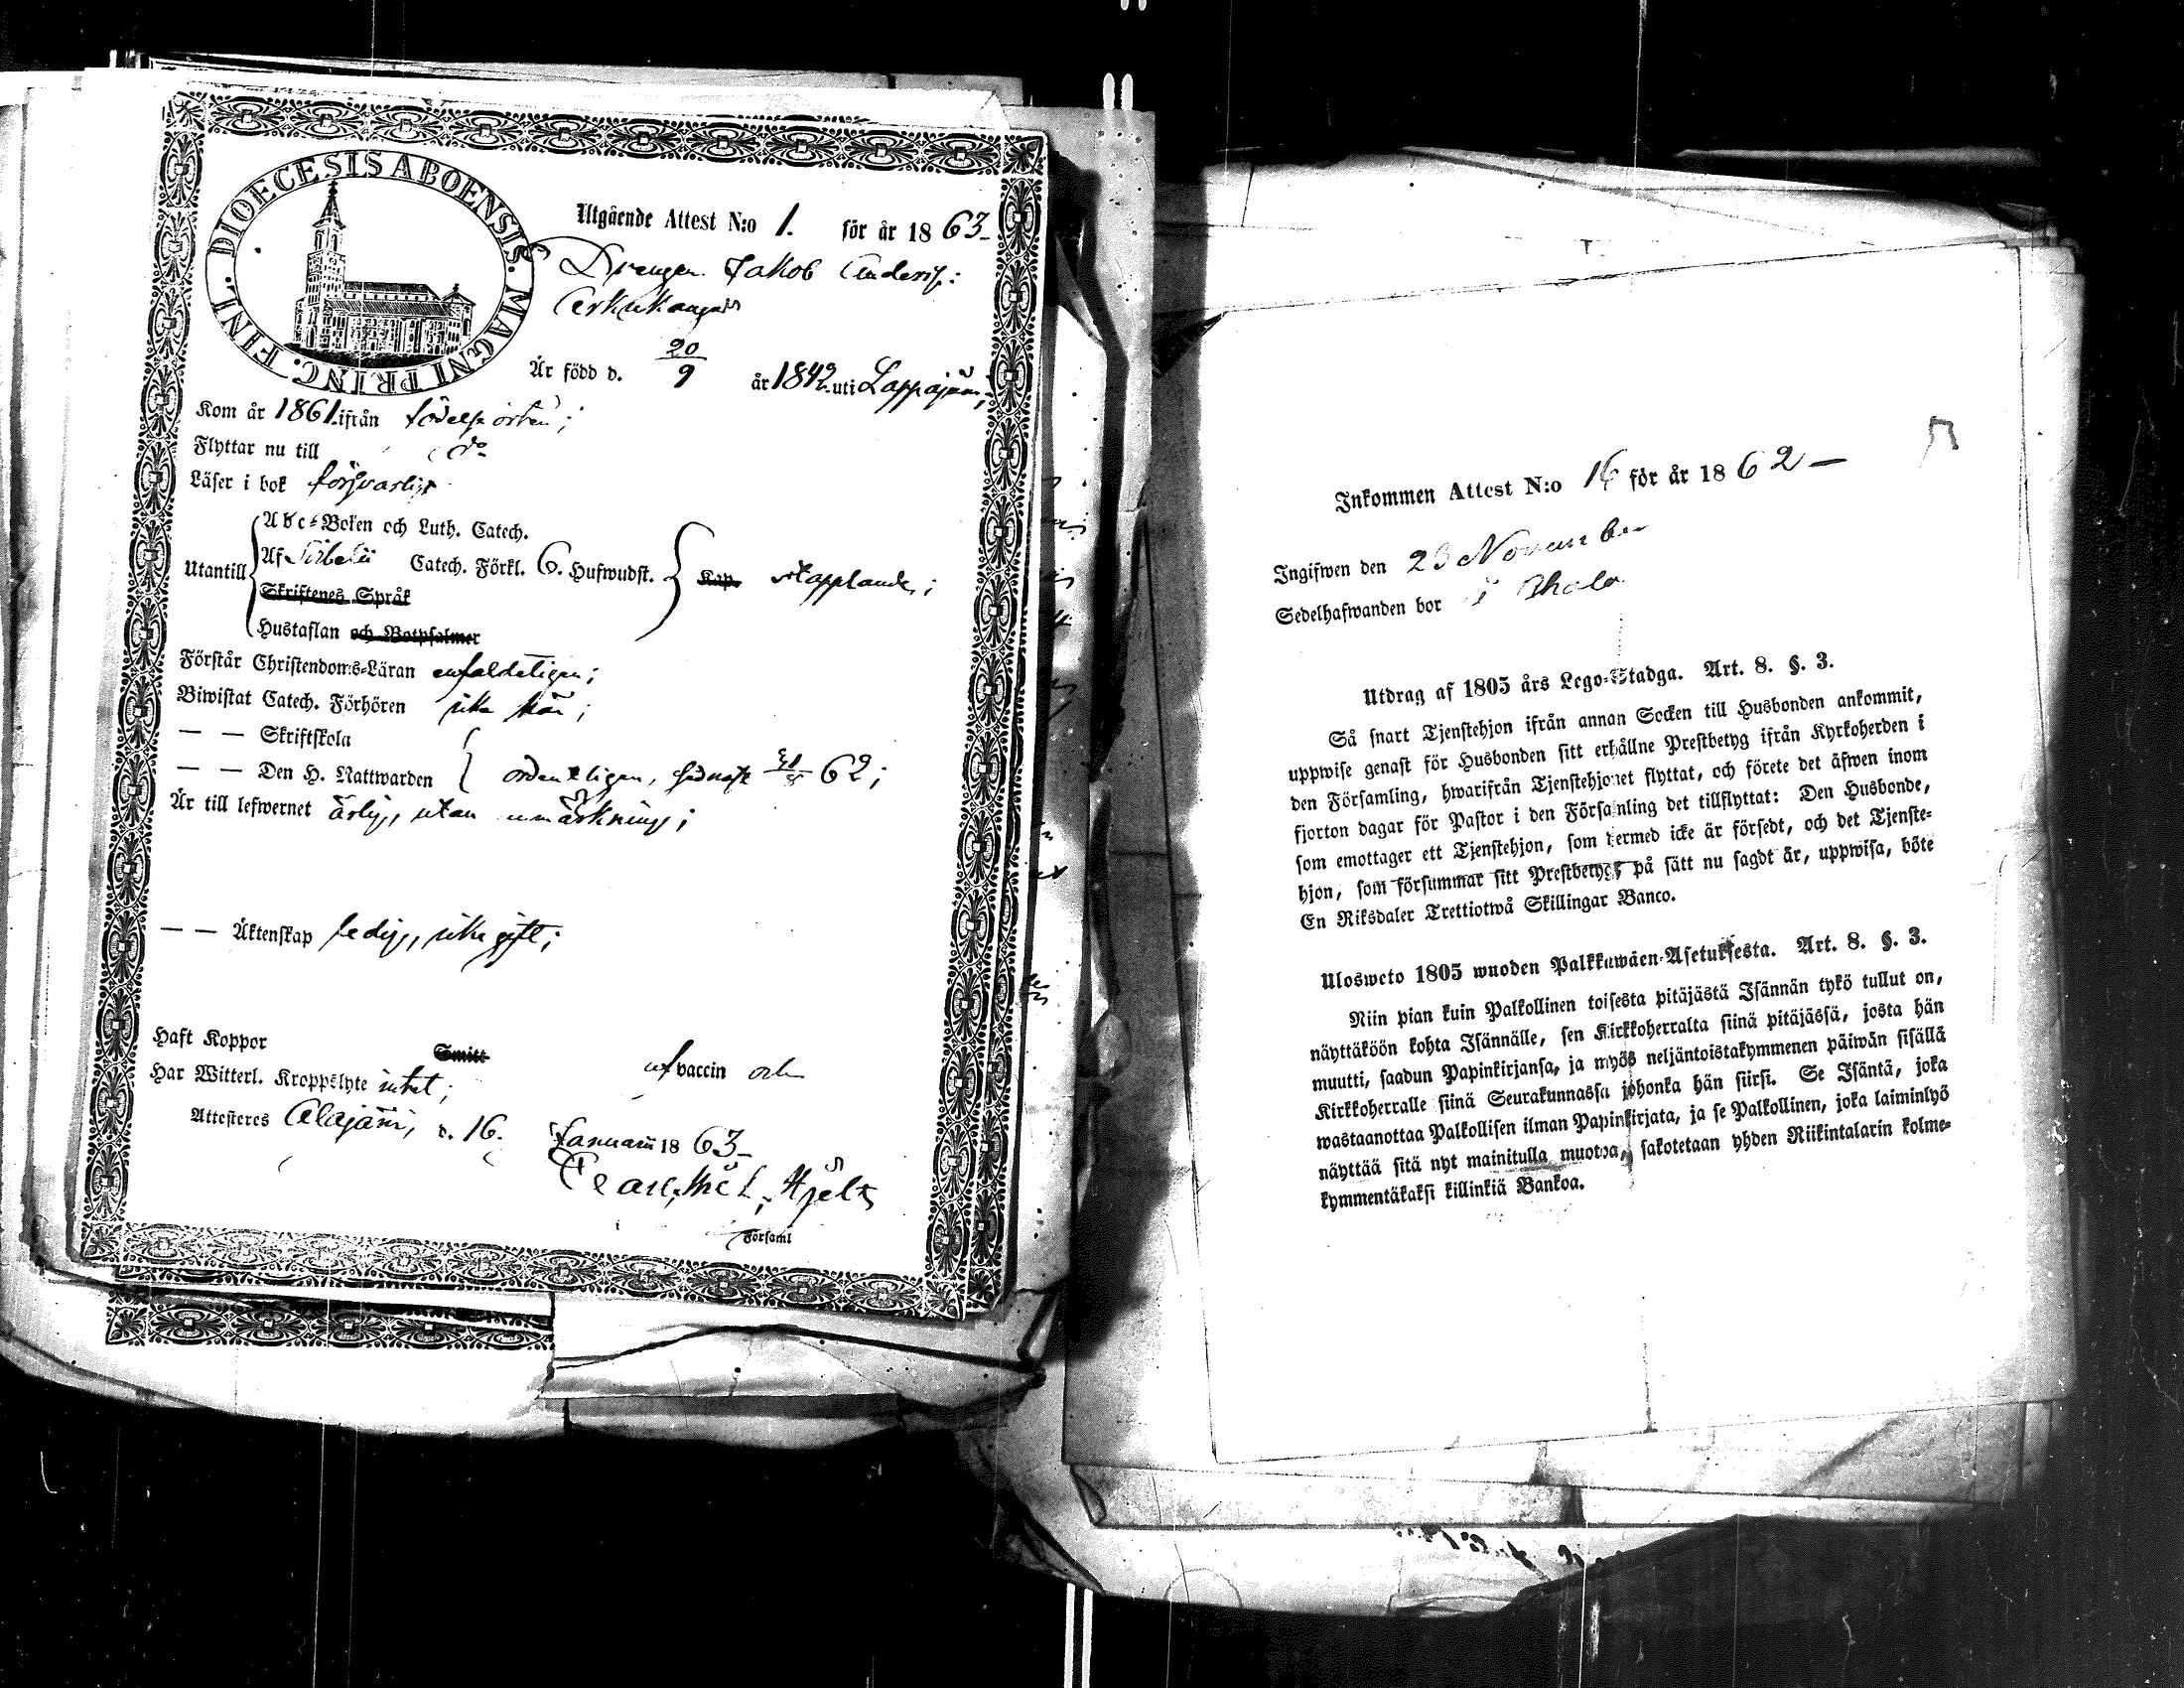 DIOECESIS ABOENSIS. MAGNI PRINC. FINL.
Utgående Attest N:o 1. för år 1863
Drengen Jakob Anders:
Är född d. 20/9 år 1842 uti Lappajärvi;
Kom år 1861 ifrån födelse orten;
Flyttar nu till do
Läser i bok försvarligt
Utantill
Abc-Boken och Luth. Catech.
Af Catech. Förkl. 6. Hufwudst.
Skriftenes Språk
Hustaflan och Botpsalmer
Kap.
Förstår Christendoms-Läran enfaldeligen;
Biwistat Catech. Förhören icke här;
— — Skriftskola
— — Den H. Nattwarden ordentligen, senast 62;
Är till lefwernet ärlig, utan anmärkning;
— — Äktenskap ledig, icke gift;
Haft Koppor Smitt af vaccin och
Har Witterl. Kroppslyte intet;
Attesteras Alajärvi, d. 16. Januarii 1863
Hjelt
Församl
Inkommen Attest N:o 16 för år 1862 —
Ingifwen den 23 November
Sedelhafwanden bor i
Utdrag af 1805 års Lego-Stadga. Art. 8. §. 3.
Så snart Tjenstehjon ifrån annan Socken till Husbonden ankommit,
uppwise genast för Husbonden sitt erhållne Prestbetyg ifrån Kyrkoherden i
den Församling, hwarifrån Tjenstehjonet flyttat, och förete det äfwen inom
fjorton dagar för Pastor i den Församling det tillflyttat: Den Husbonde,
som emottager ett Tjenstehjon, som dermed icke är försedt, och det Tjenste-
hjon, som försummar sitt Prestbetyg på sätt nu sagdt är, uppwisa, böte
En Riksdaler Trettiotwå Skillingar Banco.
Ulosweto 1805 wuoden Palkkawäen-Asetuksesta. Art. 8. §. 3.
Niin pian kuin Palkollinen toisesta pitäjästä Isännän tykö tullut on,
näyttäköön kohta Isännälle, sen Kirkkoherralta siinä pitäjässä, josta hän
muutti, saadun Papinkirjansa, ja myös neljäntoistakymmenen päiwän sisällä
Kirkkoherralle siinä Seurakunnassa johonka hän siirsi. Se Isäntä, joka
wastaanottaa Palkollisen ilman Papinkirjata, ja se Palkollinen, joka laiminlyö
näyttää sitä nyt mainitulla muotoa, sakotetaan yhden Riikintalarin kolme-
kymmentäkaksi killinkiä Bankoa.